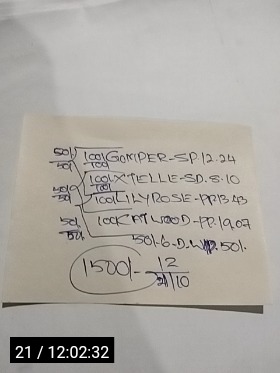 50/- 100/- GOMPER-SP.12.24
50/- 100/-
100/- XTELLE-SD.8.10
50/- 100/-
50/- 100/- LILYROSE-PP.13.43
50/- 100/- KATWOOD-PP.19.07
50/-
50/- 6-D.W 50/-
1500/- 12
21/10
21 / 12:02:32